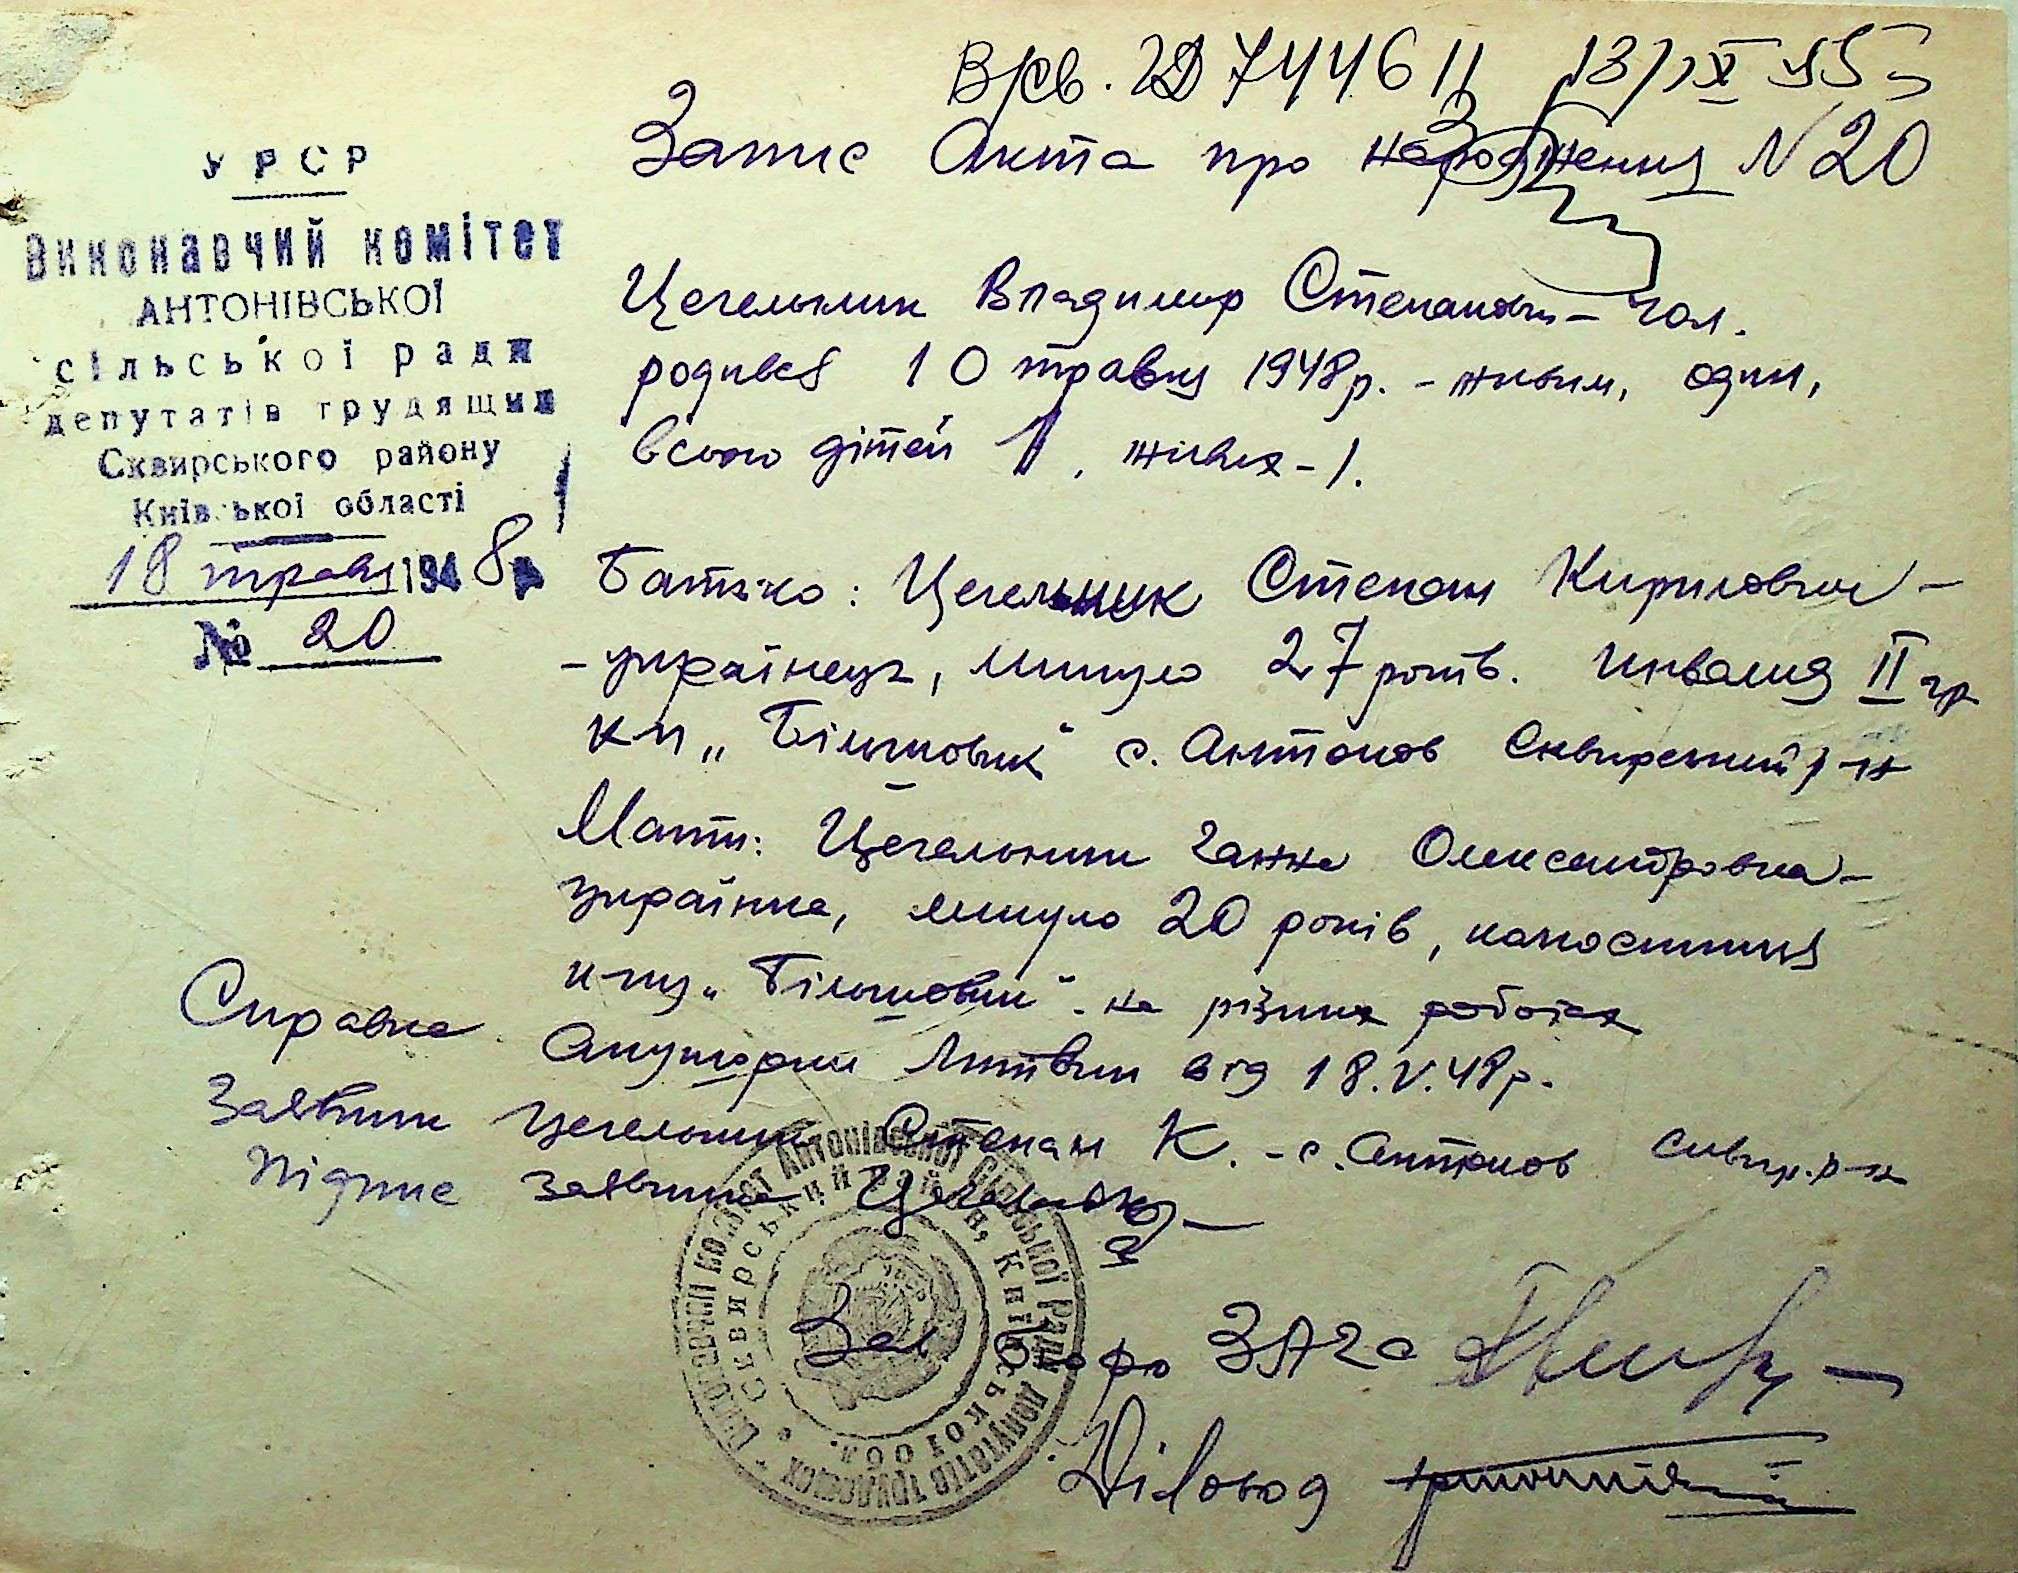 13/IX 55
Запис Акта про народження N 20
УРСР
Виконавчий комітет
АНТОНІВСЬКОЇ
сільської ради
депутатів трудящих
Сквирського району
Київської області
18 травня 1948 р
№ 20
Цегельник Владимир Степанович – чол.
родився 10 травня 1948 р. – живим, один,
всього дітей 1, живих – 1.
Батько: Цегельник Степан Кирилович –
– українець, минуло 27 років. инвалид II гр
к-п „Більшовик" с. Антонов Сквирський р-н
Мати: Цегельник Ганна Олександровна –
українка, минуло 20 років, колгоспниця
к-пу „Більшовик" на різних роботах
Справка Акушорки Литвин від 18.V.48 р.
Заявник Цегельник Степан К. – с. Антонов Сквир. р-н
Підпис заявника
Зав. Бюро ЗАГС
Діловод
ВИКОНАВЧИЙ КОМІТЕТ АНТОНІВСЬКОЇ СІЛЬСЬКОЇ РАДИ ДЕПУТАТІВ ТРУДЯЩИХ
Сквирський район, Київської обл.